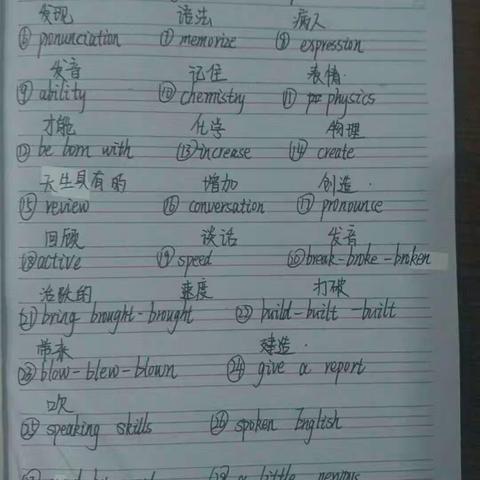 发现 语法 病人
⑥ pronunciation ⑦ memorize ⑧ expression
发音 记住 表情
⑨ ability ⑩ chemistry ⑪ physics
才能 化学 物理
⑫ be born with ⑬ increase ⑭ create
天生具有的 增加 创造
⑮ review ⑯ conversation ⑰ pronounce
回顾 谈话 发音
⑱ active ⑲ speed ⑳ break-broke-broken
活跃的 速度 打破
㉑ bring brought-brought ㉒ build-built-built
带来 建造
㉓ blow-blew-blown ㉔ give a report
吹
㉕ speaking skills ㉖ spoken English
a little nervous